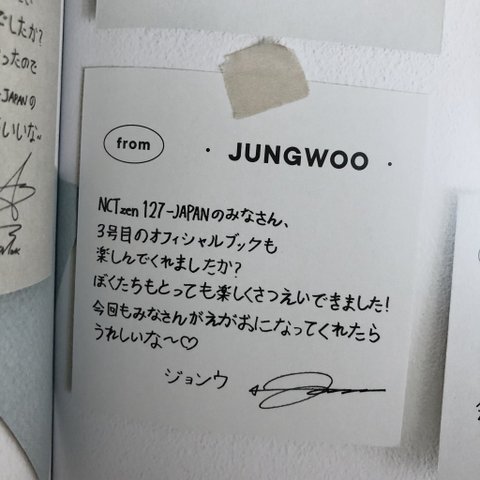 したか?
ったので
-JAPANの
いいな。
from
· JUNGWOO ·
NCTzen 127-JAPANのみなさん、
3号目のオフィシャルブックも
楽しんでくれましたか?
ぼくたちもとっても楽しくさつえいできました!
今回もみなさんがえがおになってくれたら
うれしいな〜♡
ジョンウ